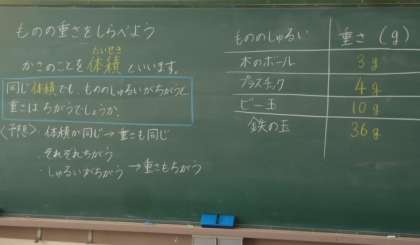 ものの重さをしらべよう
たいせき
かさのことを体積といいます。
同じ体積でも、もののしゅるいがちがうと
重さはちがうでしょうか。
〈予想〉体積が同じ→重さも同じ
・それぞれちがう
・しゅるいがちがう→重さもちがう
もののしゅるい 重さ(g)
木のボール 3g
プラスチック 4g
ビー玉 10g
鉄の玉 36g